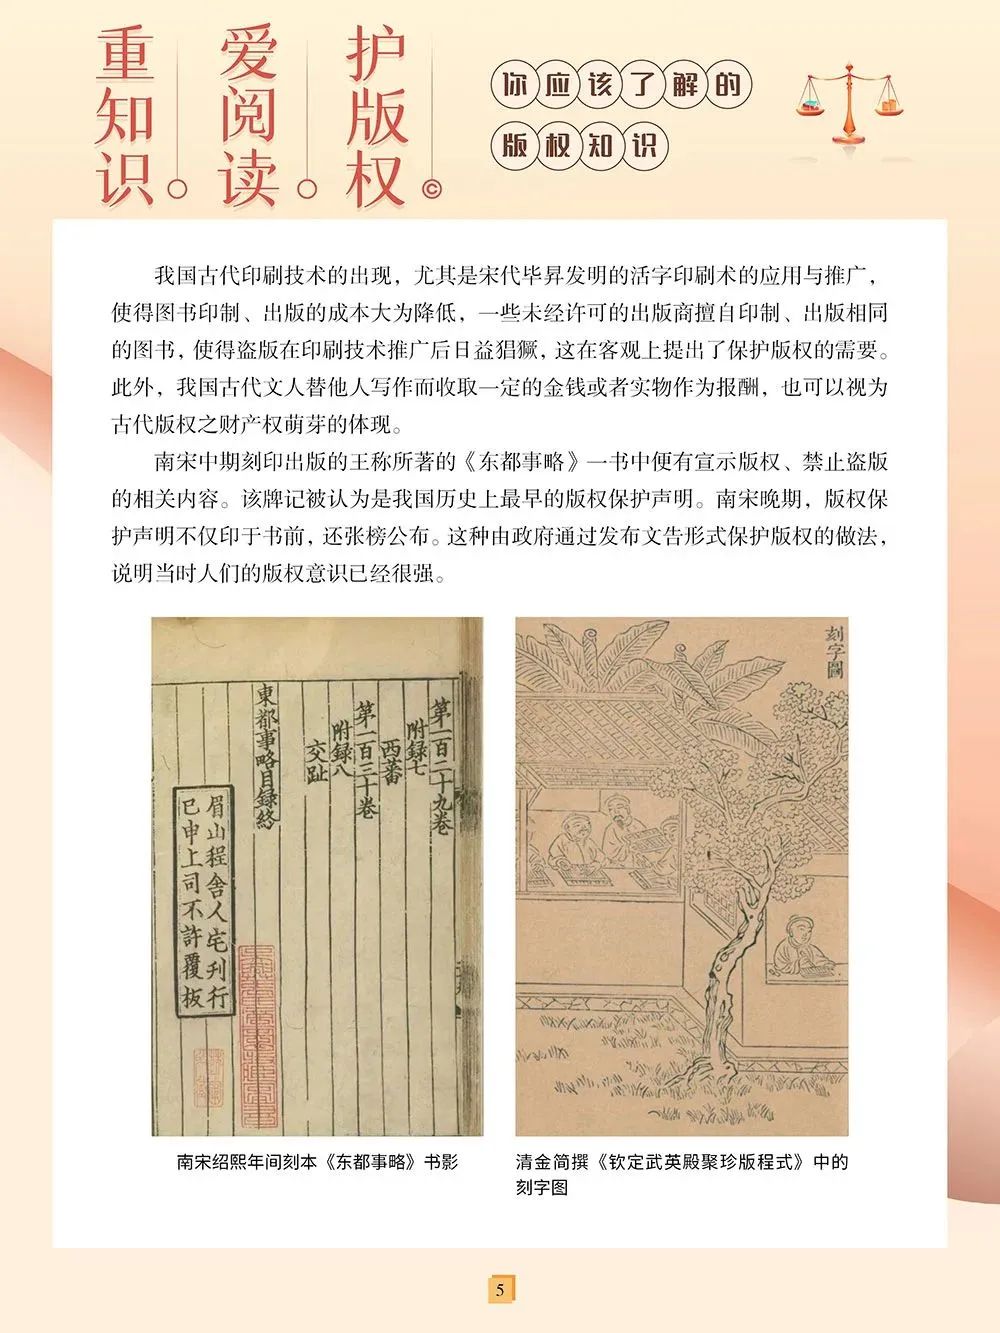 重知识
爱阅读
护版权
©
你应该了解的
版权知识
我国古代印刷技术的出现，尤其是宋代毕昇发明的活字印刷术的应用与推广，
使得图书印制、出版的成本大为降低，一些未经许可的出版商擅自印制、出版相同
的图书，使得盗版在印刷技术推广后日益猖獗，这在客观上提出了保护版权的需要。
此外，我国古代文人替他人写作而收取一定的金钱或者实物作为报酬，也可以视为
古代版权之财产权萌芽的体现。
南宋中期刻印出版的王称所著的《东都事略》一书中便有宣示版权、禁止盗版
的相关内容。该牌记被认为是我国历史上最早的版权保护声明。南宋晚期，版权保
护声明不仅印于书前，还张榜公布。这种由政府通过发布文告形式保护版权的做法，
说明当时人们的版权意识已经很强。
第一百二十九卷
附録七
西蕃
第一百三十卷
附録八
交趾
東都事略目録終
眉山程舎人宅刊行
已申上司不許覆板
刻字圖
南宋绍熙年间刻本《东都事略》书影
清金简撰《钦定武英殿聚珍版程式》中的
刻字图
5